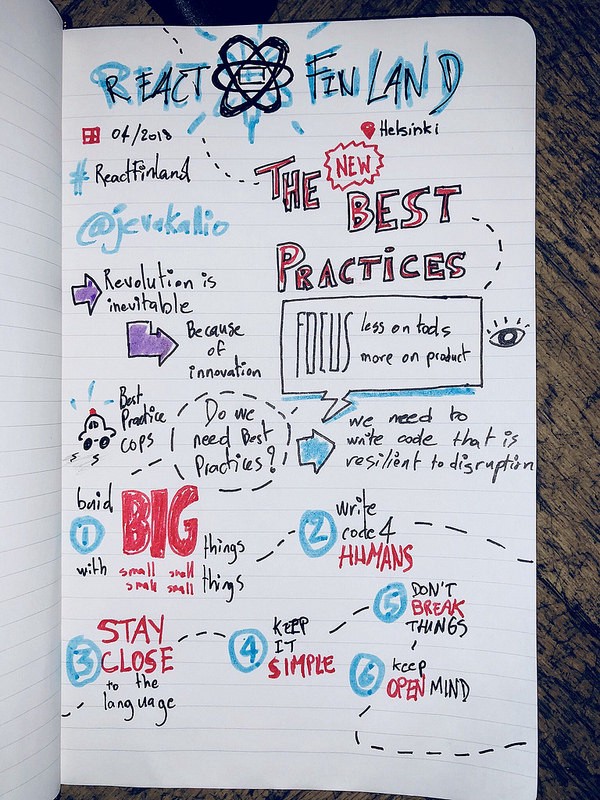 REACT FINLAND
04/2018
Helsinki
#ReactFinland
@jevakallio
THE NEW
BEST
PRACTICES
Revolution is
inevitable
Because
of
innovation
FOCUS
less on tools
more on product
Best
Practice
cops
Do we
need Best
Practices?
we need to
write code that is
resilient to disruption
1
buid
BIG things
with small small things
small small
2
write
code 4
HUMANS
3
STAY
CLOSE
to the
language
4
KEEP
IT
SIMPLE
5
DON'T
BREAK
THINGS
6
keep
OPEN MIND